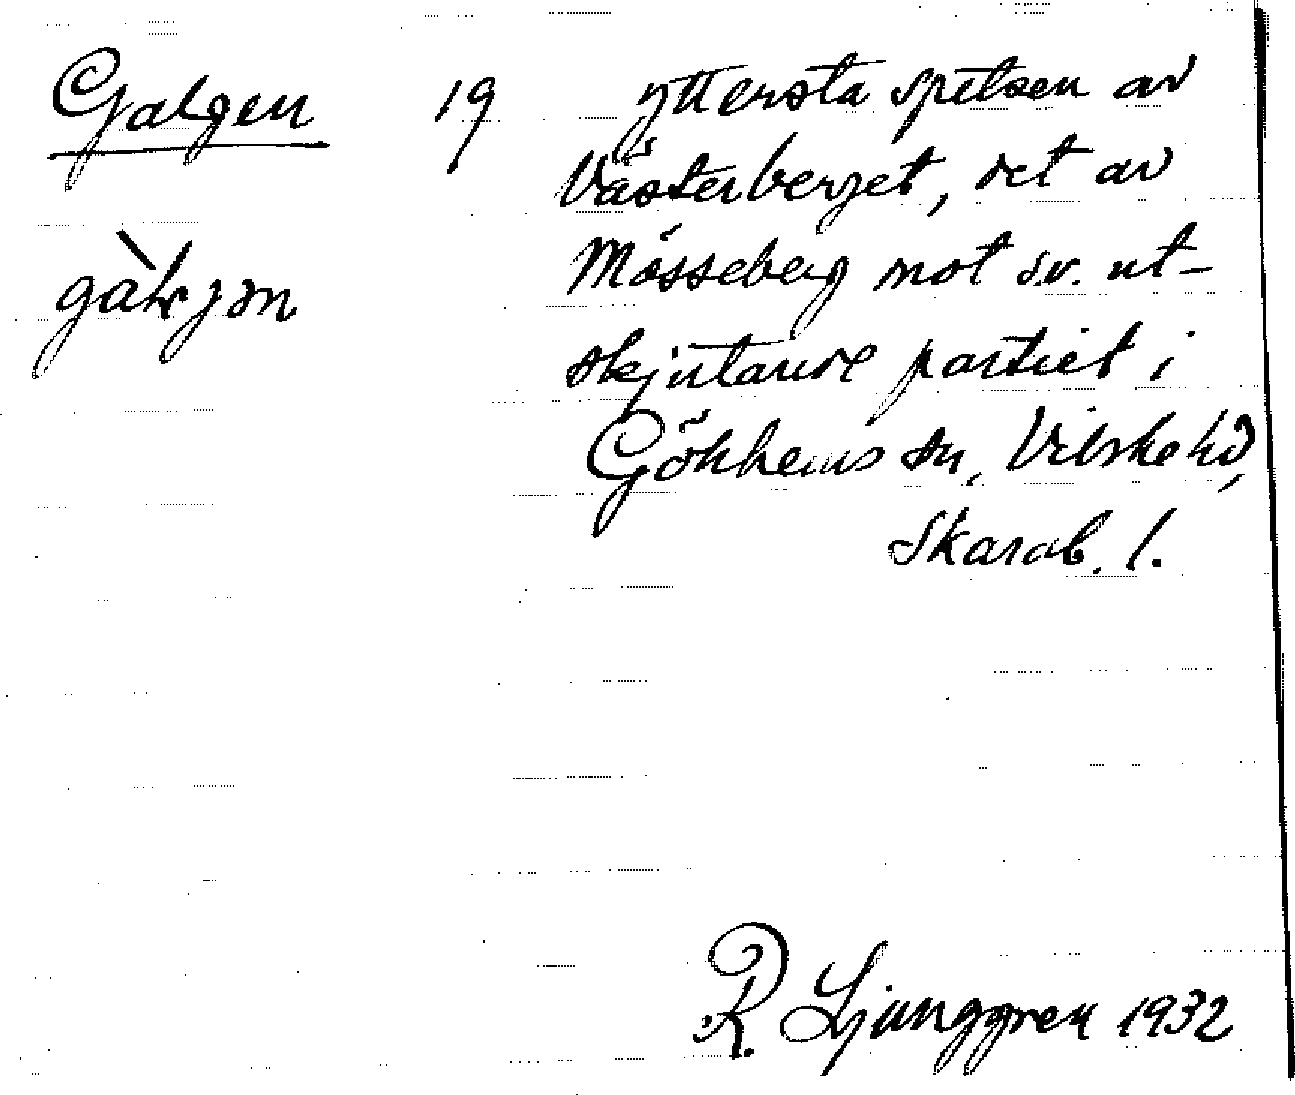 Galgen 19 yttersta spetsen av
Västerberget, det av
Mösseberg mot s.v. ut-
skjutande partiet i
Gökhems sn, Vilske hd,
Skarab. l.
R. Ljunggren 1932